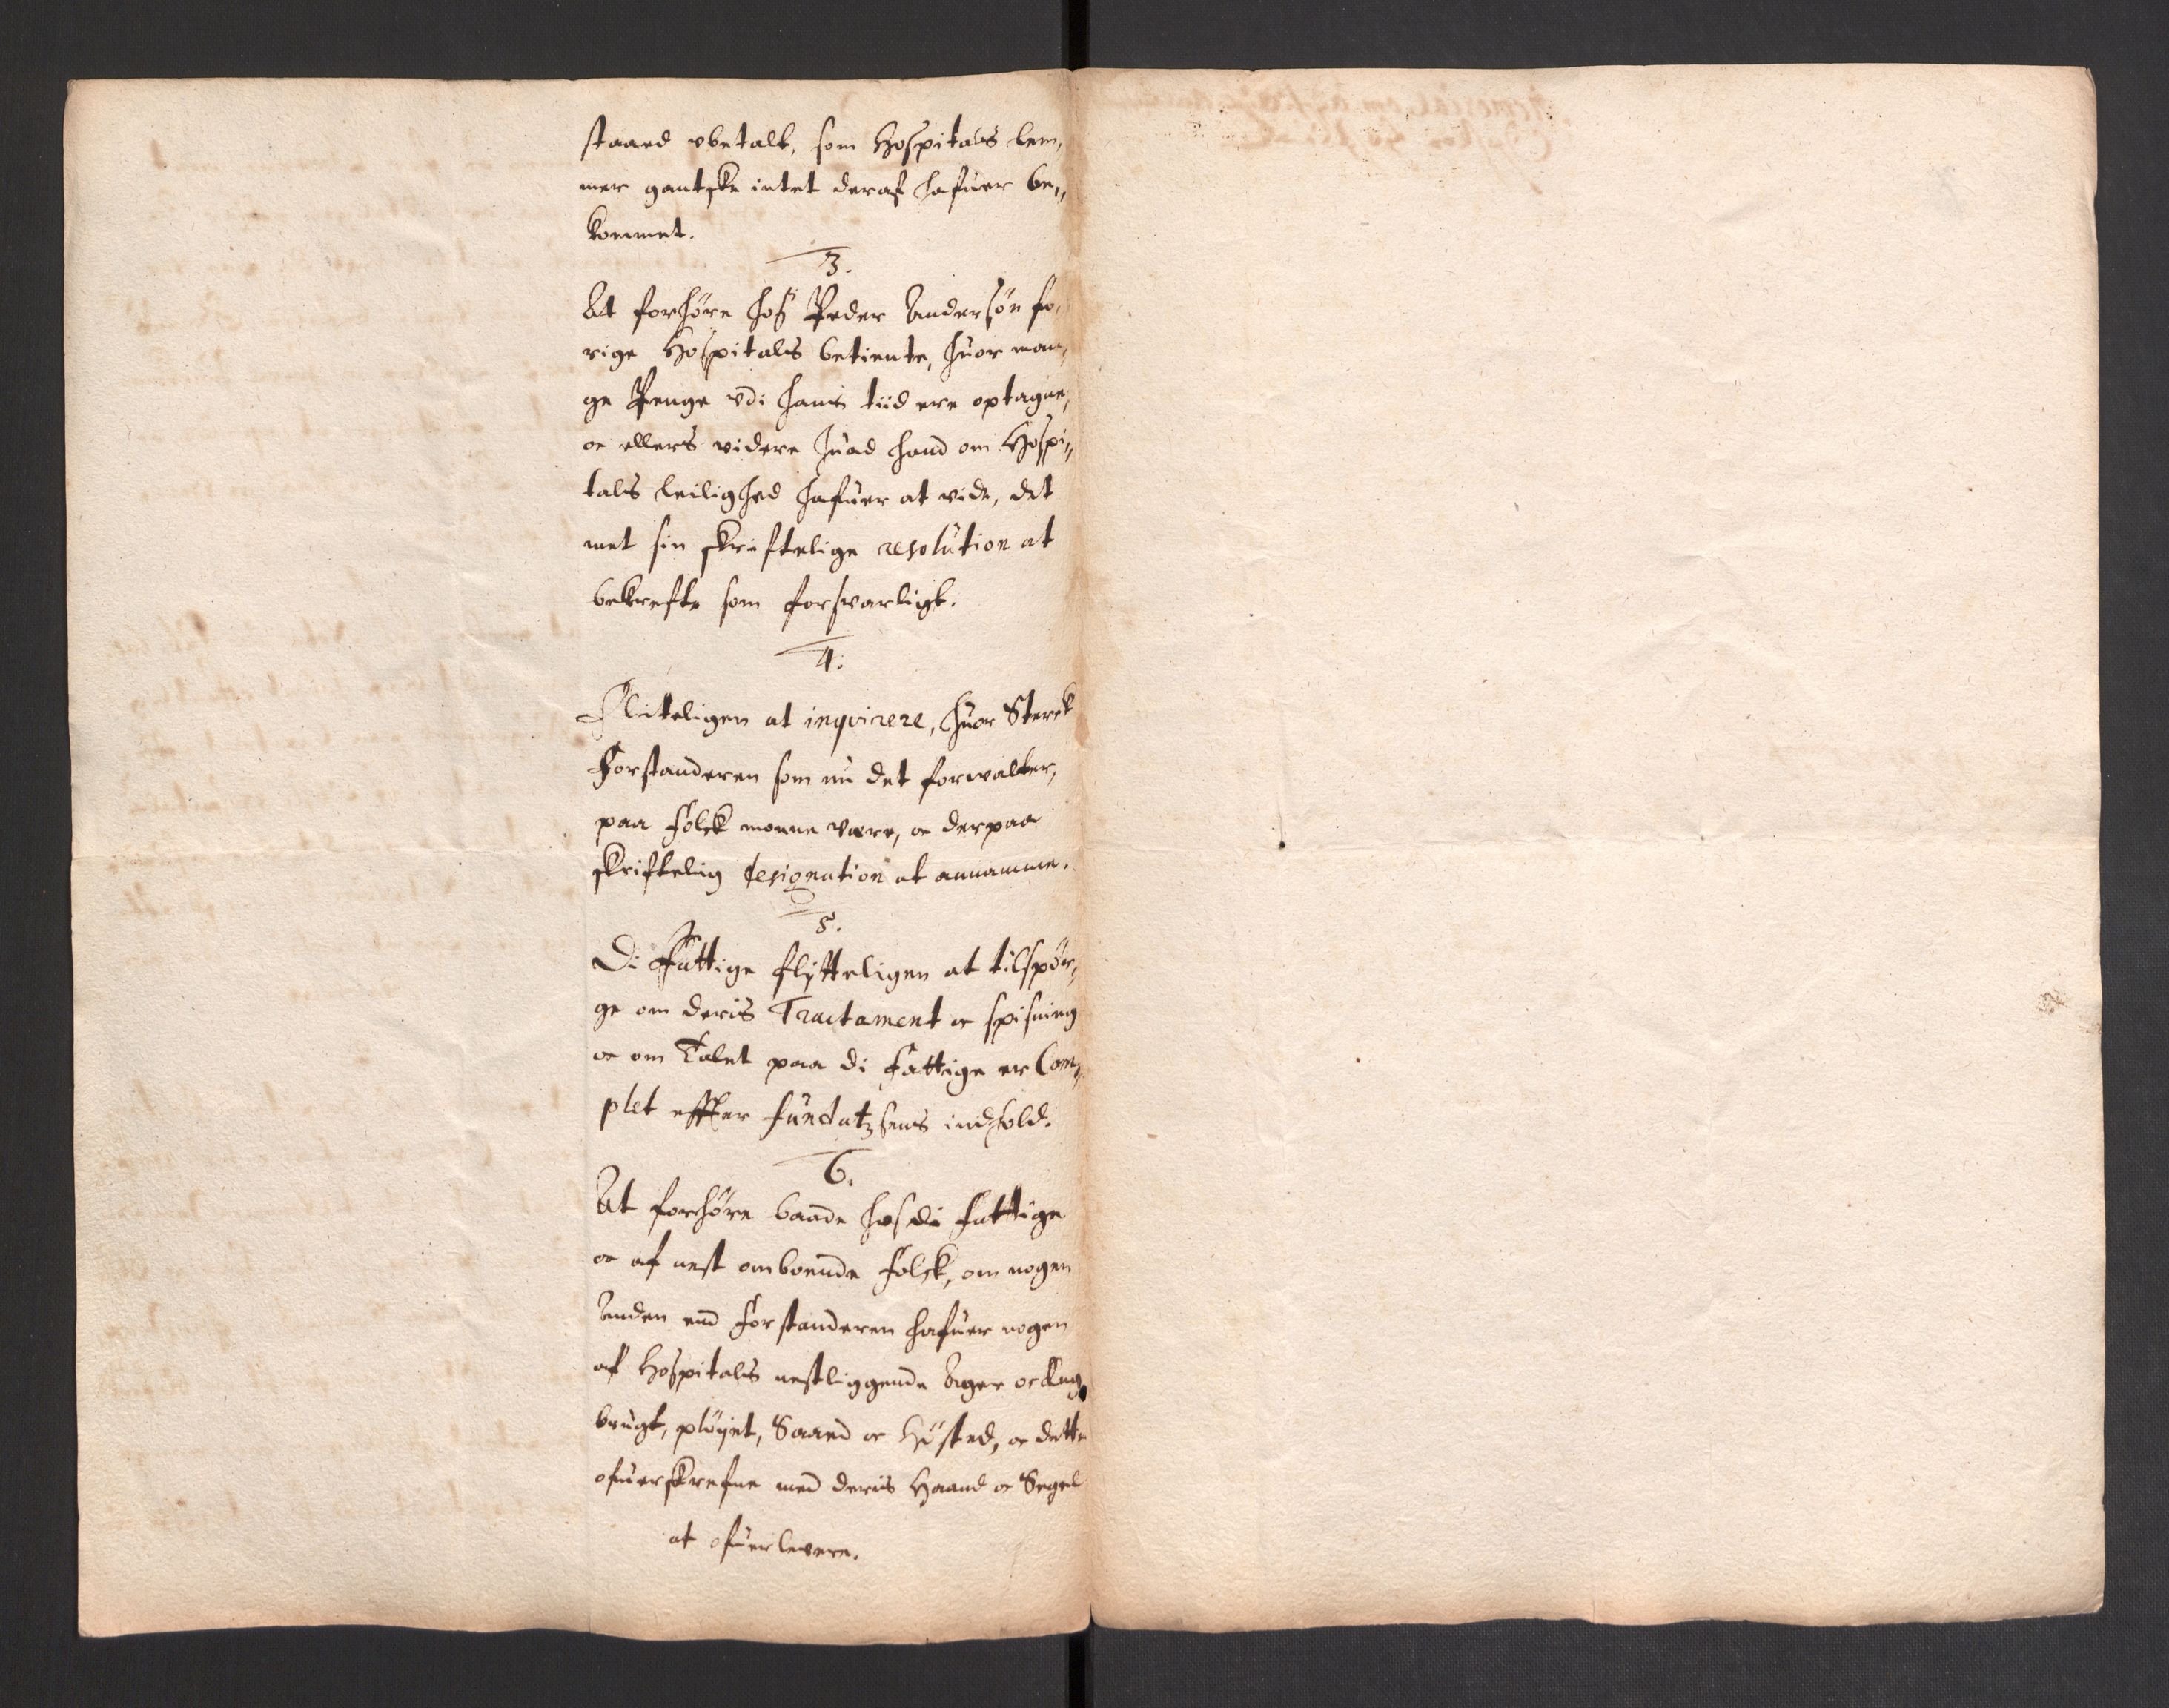 staaed vbetalt, som Hospitals lem,
mer gantske intet deraf hafuer be,,
kommet.
3.
At forhøre hoß Peder Andersøn fo,
rige Hospitals betiente, huor man,
ge Penge vdi hans tiid ere optagne,
oc ellers videre huad hand om Hospi,,
tals leilighed hafuer at vide, det
met sin skriftelige resolution at
bekrefte som forsvarligt.
4.
Fliteligen at inqvirere, huor Sterck
Forstanderen som nu det forvalter,
paa Folck monne være, oc derpaa
skriftelig designation at annamme.
5.
Di Fattige flitteligen at tilspør,
ge om deris Tractament oc spisning
oc om Talet paa di Fattige er Com,
plet effter fundatzsens indhold.
6.
At forhøre baade hos di Fattige
oc af nest omboende Folck, om nogen
Anden end Forstanderen hafuer nogen
af Hospitals nestliggende Ager oc Eng,
brugt, pløyet, Saaed oc Høsted, oc dette
ofuerskrefne med deris Haand oc Segel
at ofuerlevere.